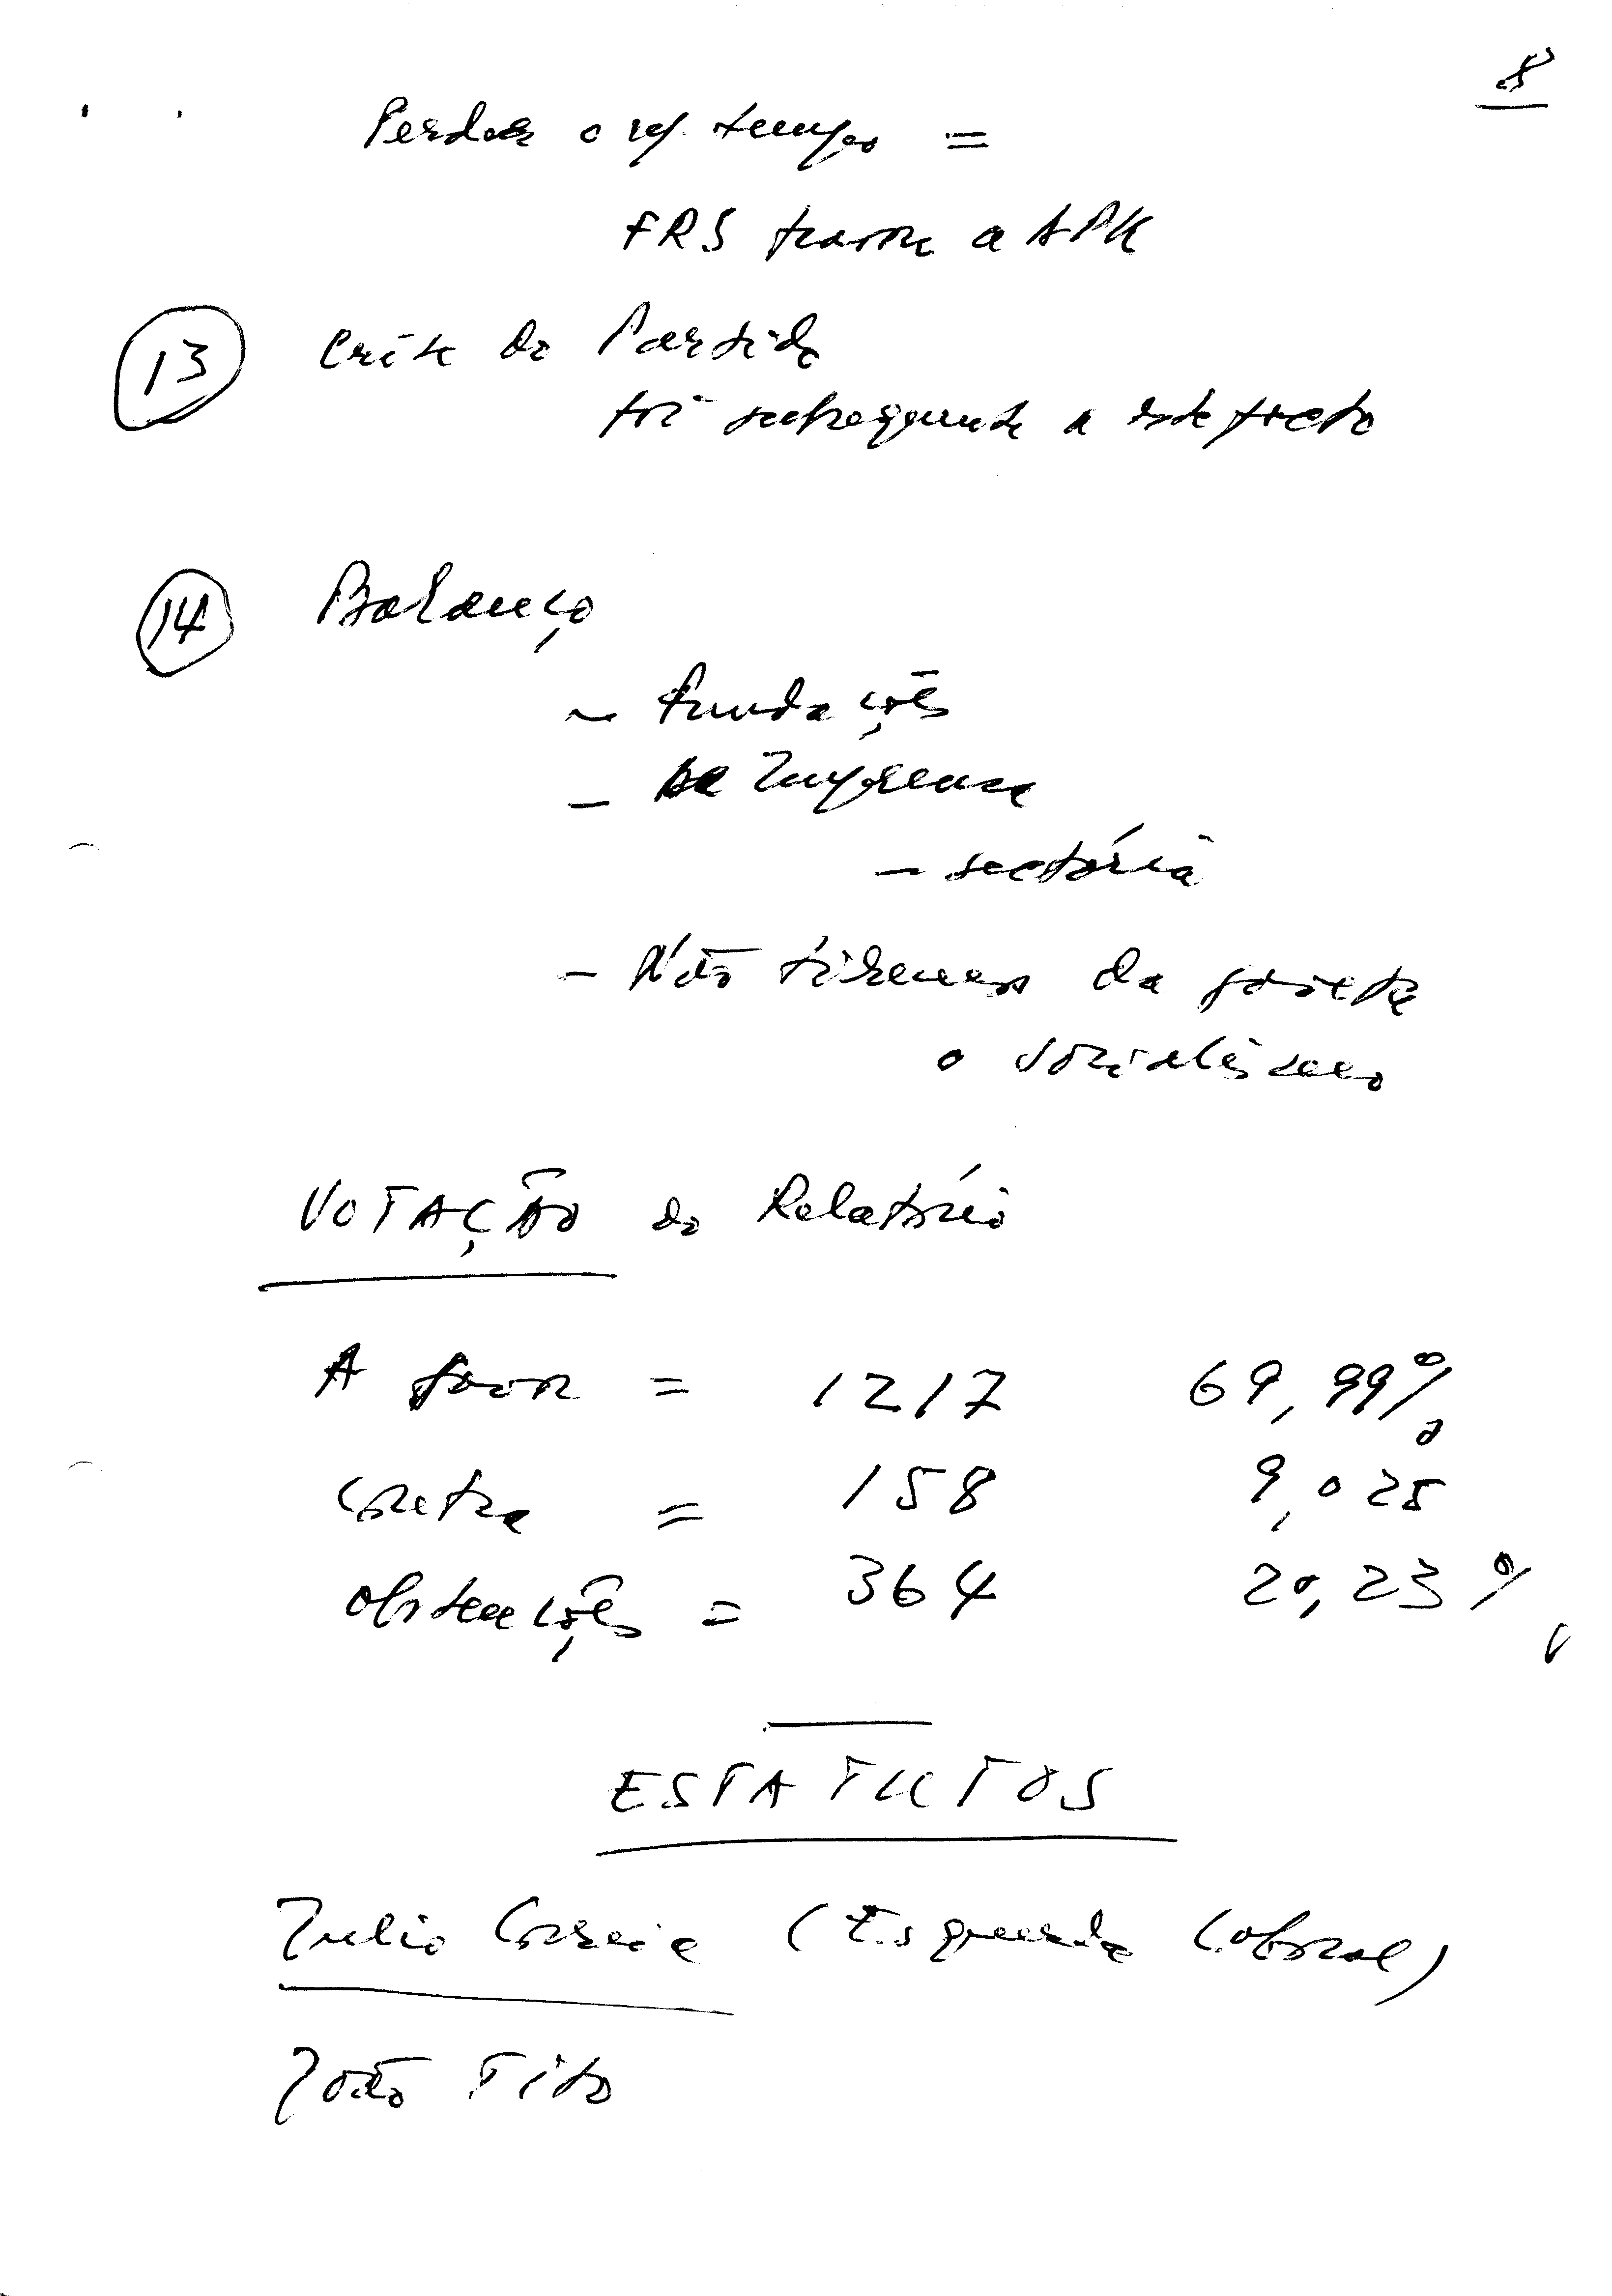 8
Perder o tempo =
FRS a
13 Crise do Partido
foi subsequente a este facto
14 Balanço
– Fundações
– Imprensa
– sectória
– Não tiremos da gaveta
o socialismo
VOTAÇÃO do Relatório
A favor = 1217 69,99%
Contra = 158 9,025
Obstenções = 364 20,23%
ESTATUTOS
Julio Correia (Esquerda Laboral)
João Tito